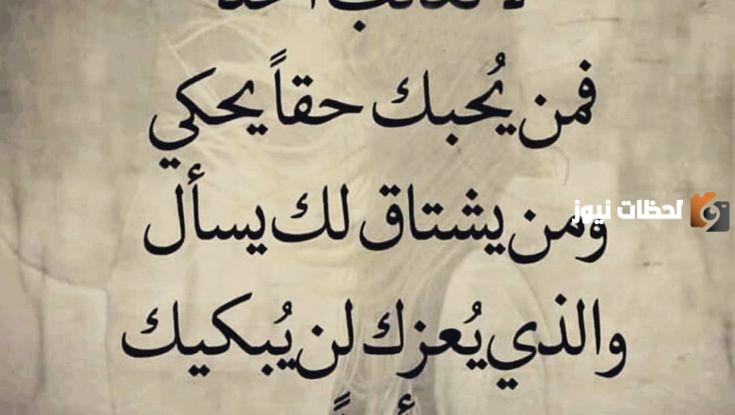 لا تعاتب أحداً
فمن يُحبك حقاً يحكي
ومن يشتاق لك يسأل
لحظات نيوز
والذي يُعزك لن يُبكيك